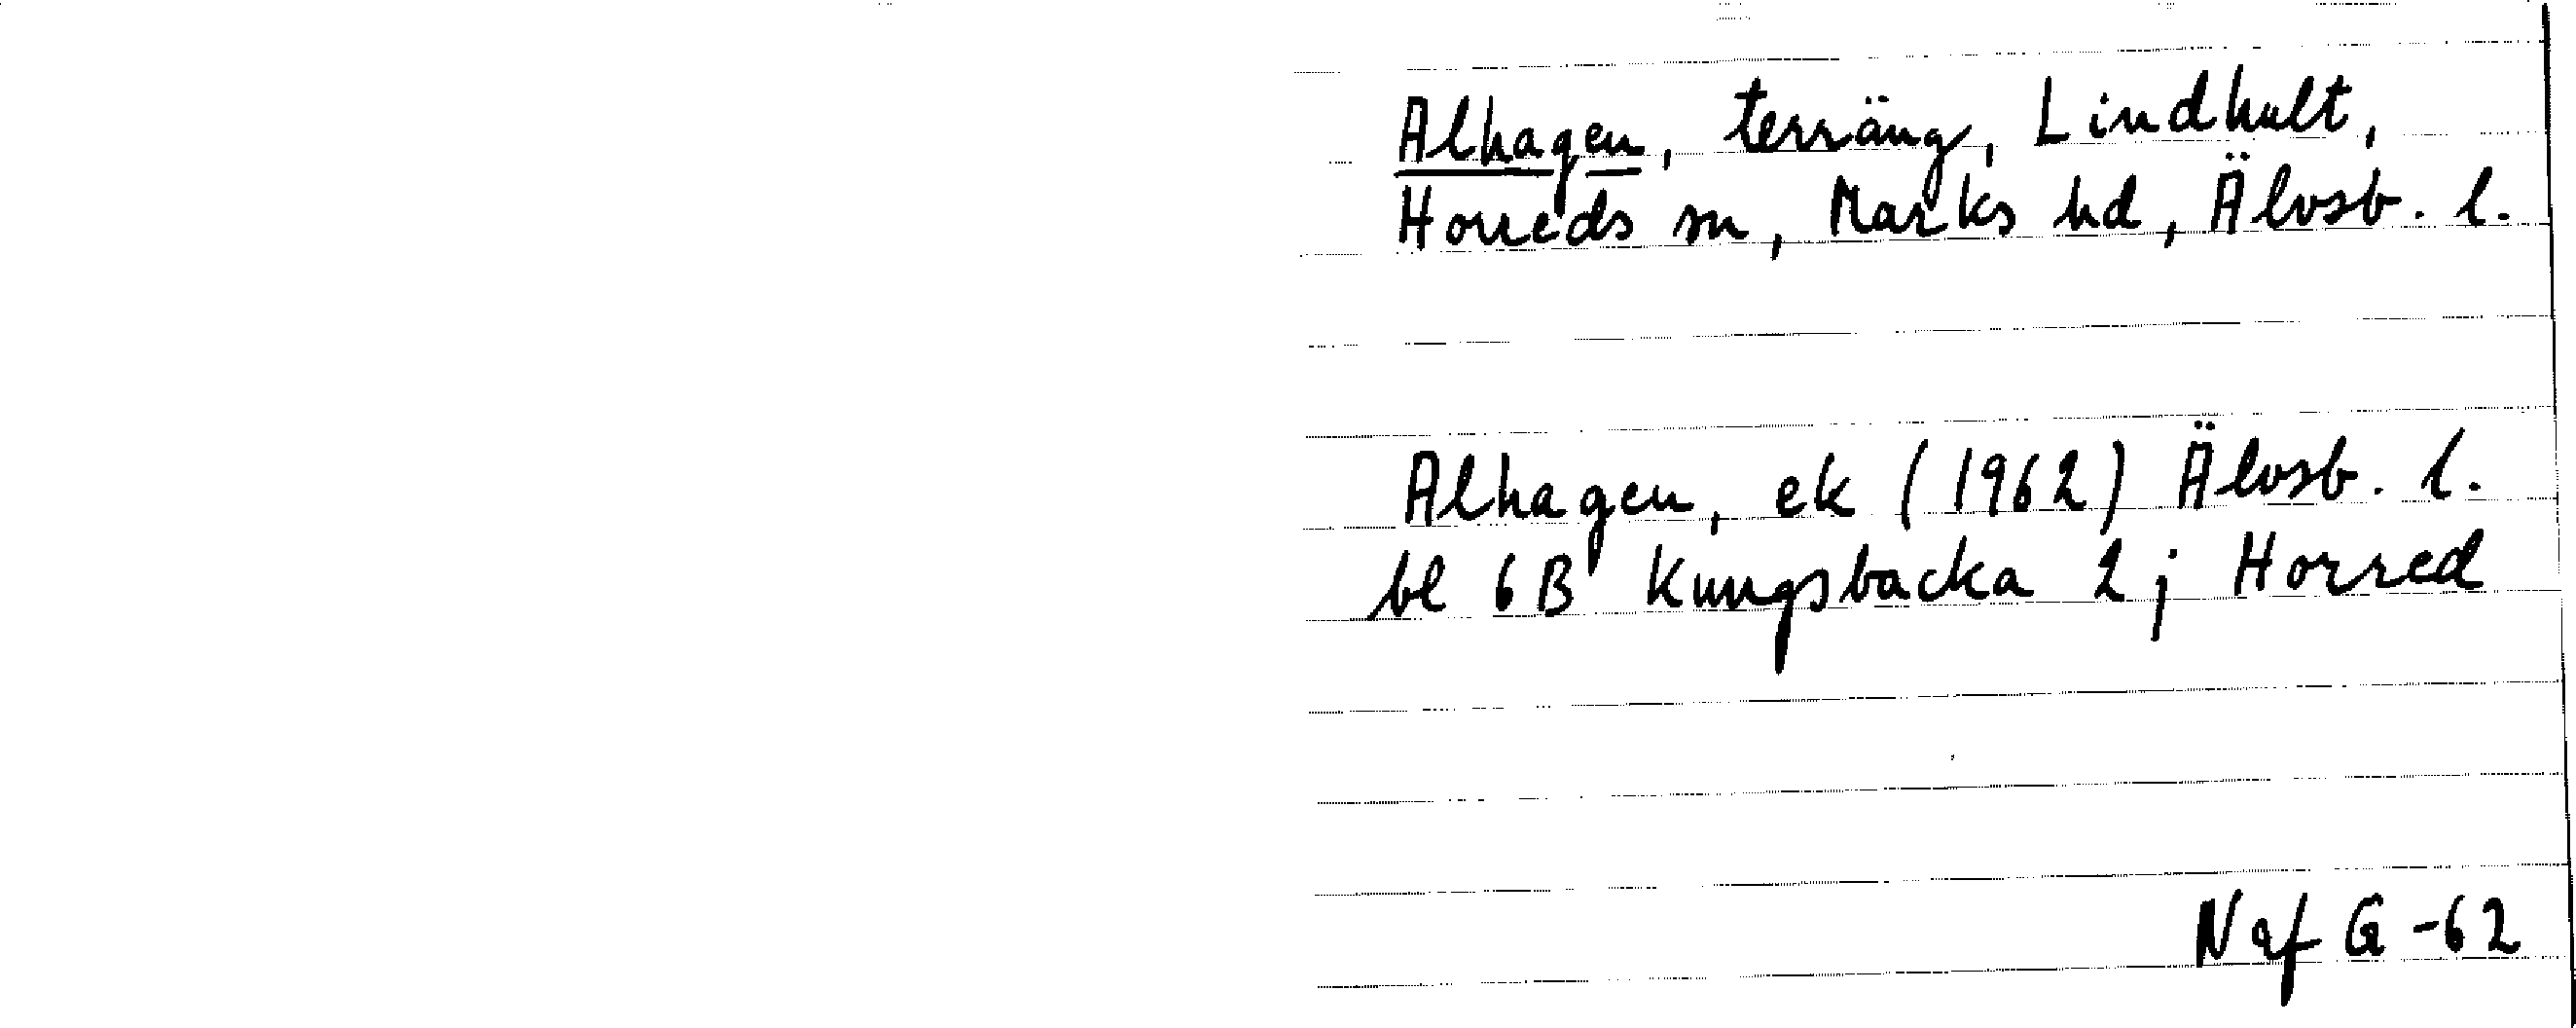 Alhagen, terräng, Lindhult,
Horreds sn, Marks hd, Älvsb. l.
Alhagen, ek (1962) Älvsb. l.
bl 6B Kungsbacka 2; Horred
Naf G-62